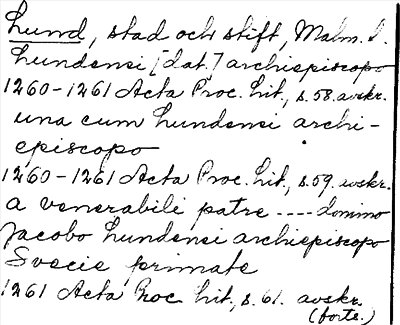 Lund, stad och stift, Malm. l.
Lundensi [dat.] archiepiscopo
1260-1261 Acta Proc. Lit., s. 58. avskr.
una cum Lundensi archi-
episcopo
1260-1261 Acta Proc. Lit., s. 59. avskr.
a venerabili patre ---- domino
Jacobo Lundensi archiepiscopo
Svecie primate
1261 Acta Proc Lit., s. 61. avskr.
(forts.)